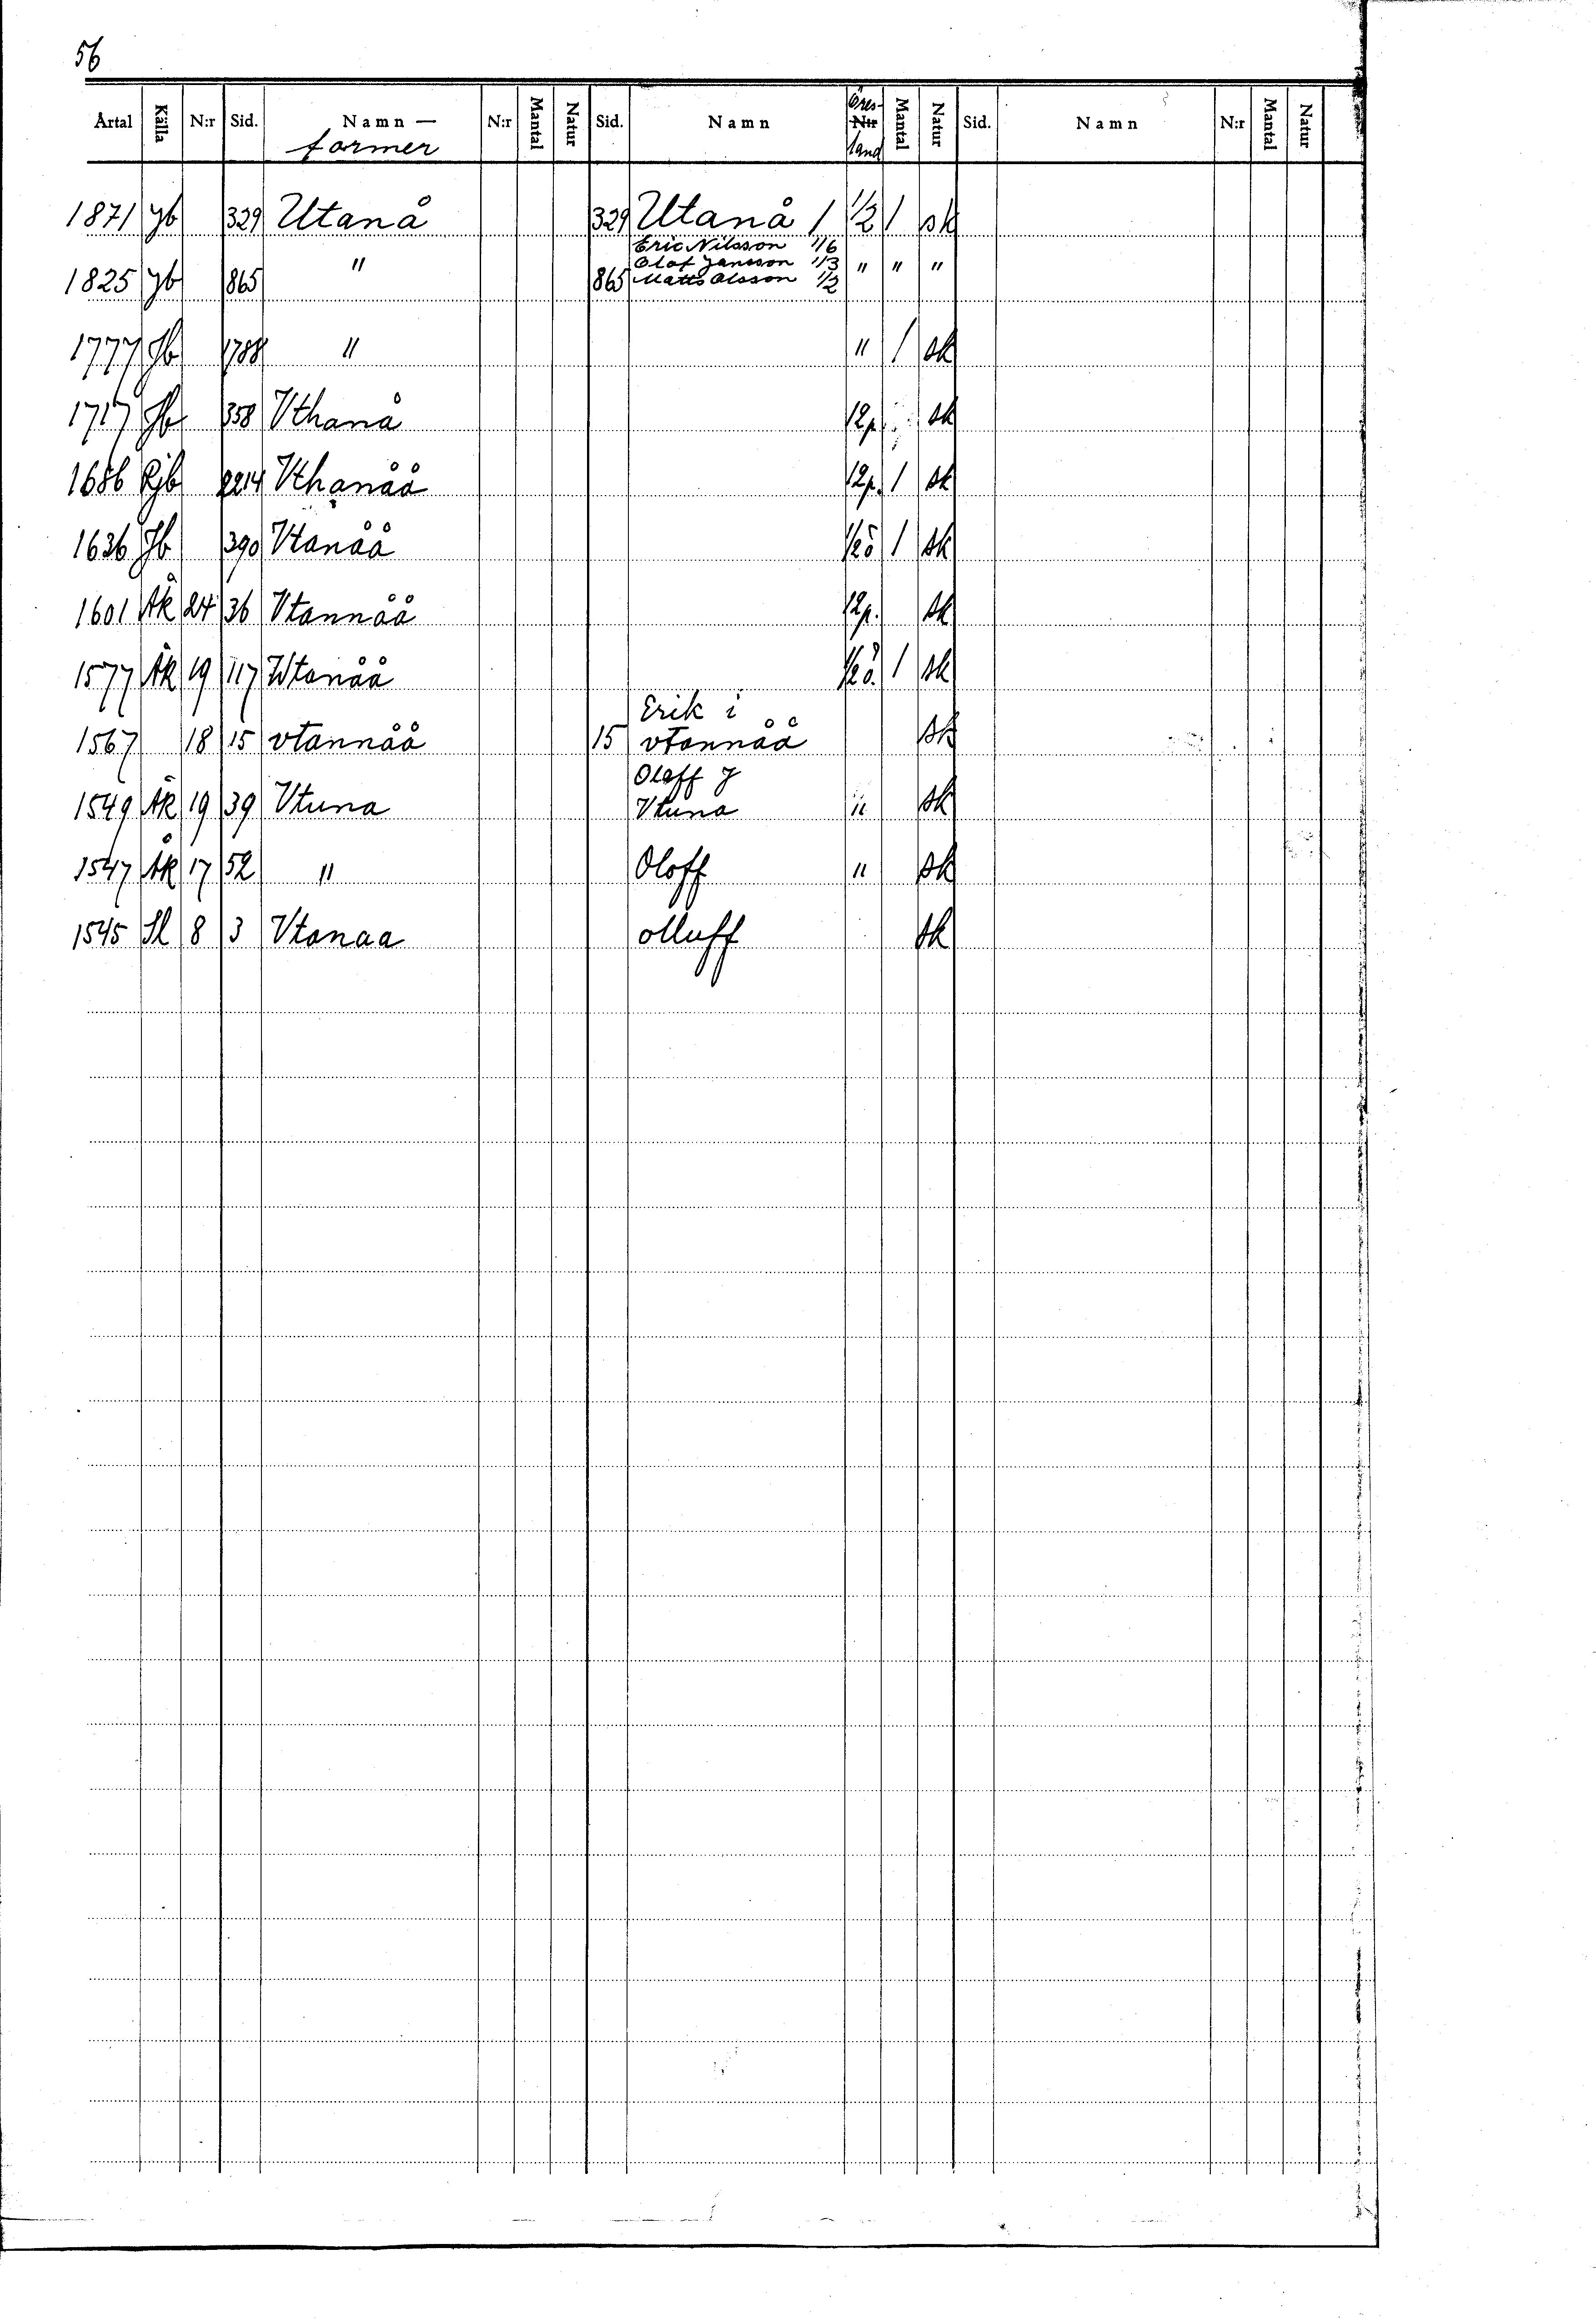 56
Årtal Källa N:r Sid. Namn — former N:r Mantal Natur Sid. Namn Öres- N:r land Mantal Natur Sid. Namn N:r Mantal Natur
1871 Jb 329 Utanå 329 Utanå 1 1/2 1 sk
Eric Nilsson 1/6
Olof Jansson 1/3
1825 Jb 865 " 865 Matts Olsson 1/2 " " "
1777 Jb 1788 " " 1 sk
1717 Jb 358 Vthanå 12p. sk
1686 Rjb 2214 Vthanåå 12p. 1 sk
1636 Jb 390 Vtanåå 1/2ö 1 sk
1601 ÅK 24 36 Vtannåå 12p. sk
1577 ÅK 19 117 Wtanåå 1/2ö. 1 sk
Erik i
1567 18 15 vtannåå 15 vtannåå sk
Olaff J
1549 ÅK 19 39 Vtuna Vtuna " sk
1547 ÅK 17 52 " Oloff " sk
1545 Sl 8 3 Vtanaa olluff sk